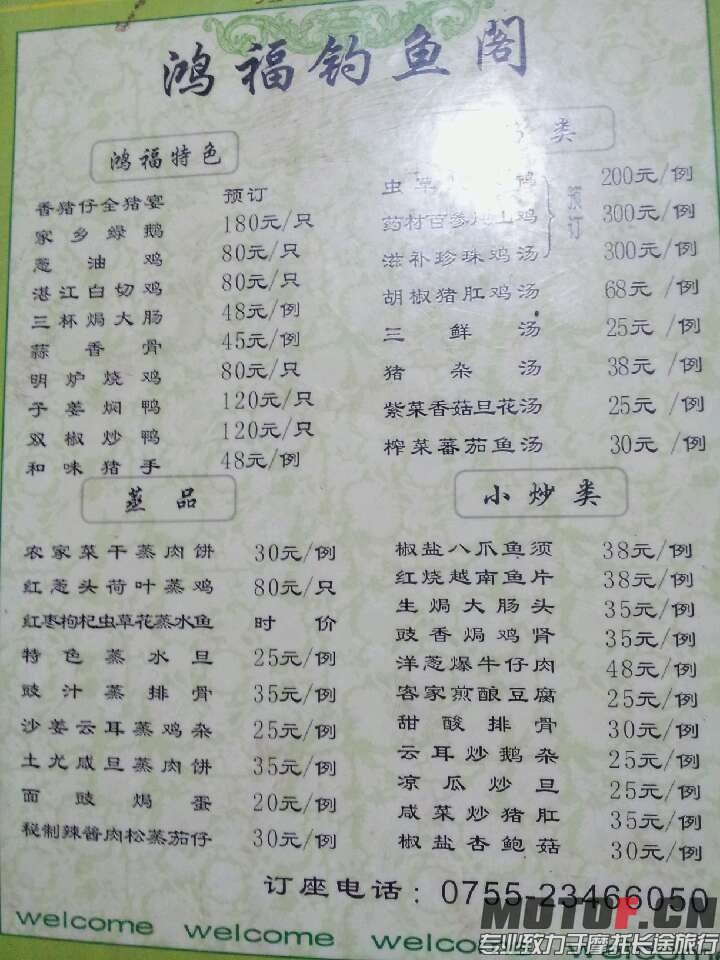 鸿福钓鱼阁
鸿福特色
香猪仔全猪宴 预订
家乡绿鹅 180元/只
葱油鸡 80元/只
湛江白切鸡 80元/只
三杯焗大肠 48元/例
蒜香骨 45元/例
明炉烧鸡 80元/只
子姜焖鸭 120元/只
双椒炒鸭 120元/只
和味猪手 48元/例
类
虫草 鸡 200元/例
药材百参 山鸡 300元/例
滋补珍珠鸡汤 300元/例
预订
胡椒猪肚鸡汤 68元/例
三鲜汤 25元/例
猪杂汤 38元/例
紫菜香菇旦花汤 25元/例
榨菜蕃茄鱼汤 30元/例
蒸品
农家菜干蒸肉饼 30元/例
红葱头荷叶蒸鸡 80元/只
红枣枸杞虫草花蒸水鱼 时价
特色蒸水旦 25元/例
豉汁蒸排骨 35元/例
沙姜云耳蒸鸡杂 25元/例
土尤咸旦蒸肉饼 35元/例
面豉焗蛋 20元/例
秘制辣酱肉松蒸茄仔 30元/例
小炒类
椒盐八爪鱼须 38元/例
红烧越南鱼片 38元/例
生焗大肠头 35元/例
豉香焗鸡肾 35元/例
洋葱爆牛仔肉 48元/例
客家煎酿豆腐 25元/例
甜酸排骨 30元/例
云耳炒鹅杂 25元/例
凉瓜炒旦 25元/例
咸菜炒猪肚 35元/例
椒盐杏鲍菇 30元/例
订座电话：0755-23466050
welcome welcome welcome
MOTOF.CN
专业致力于摩托长途旅行